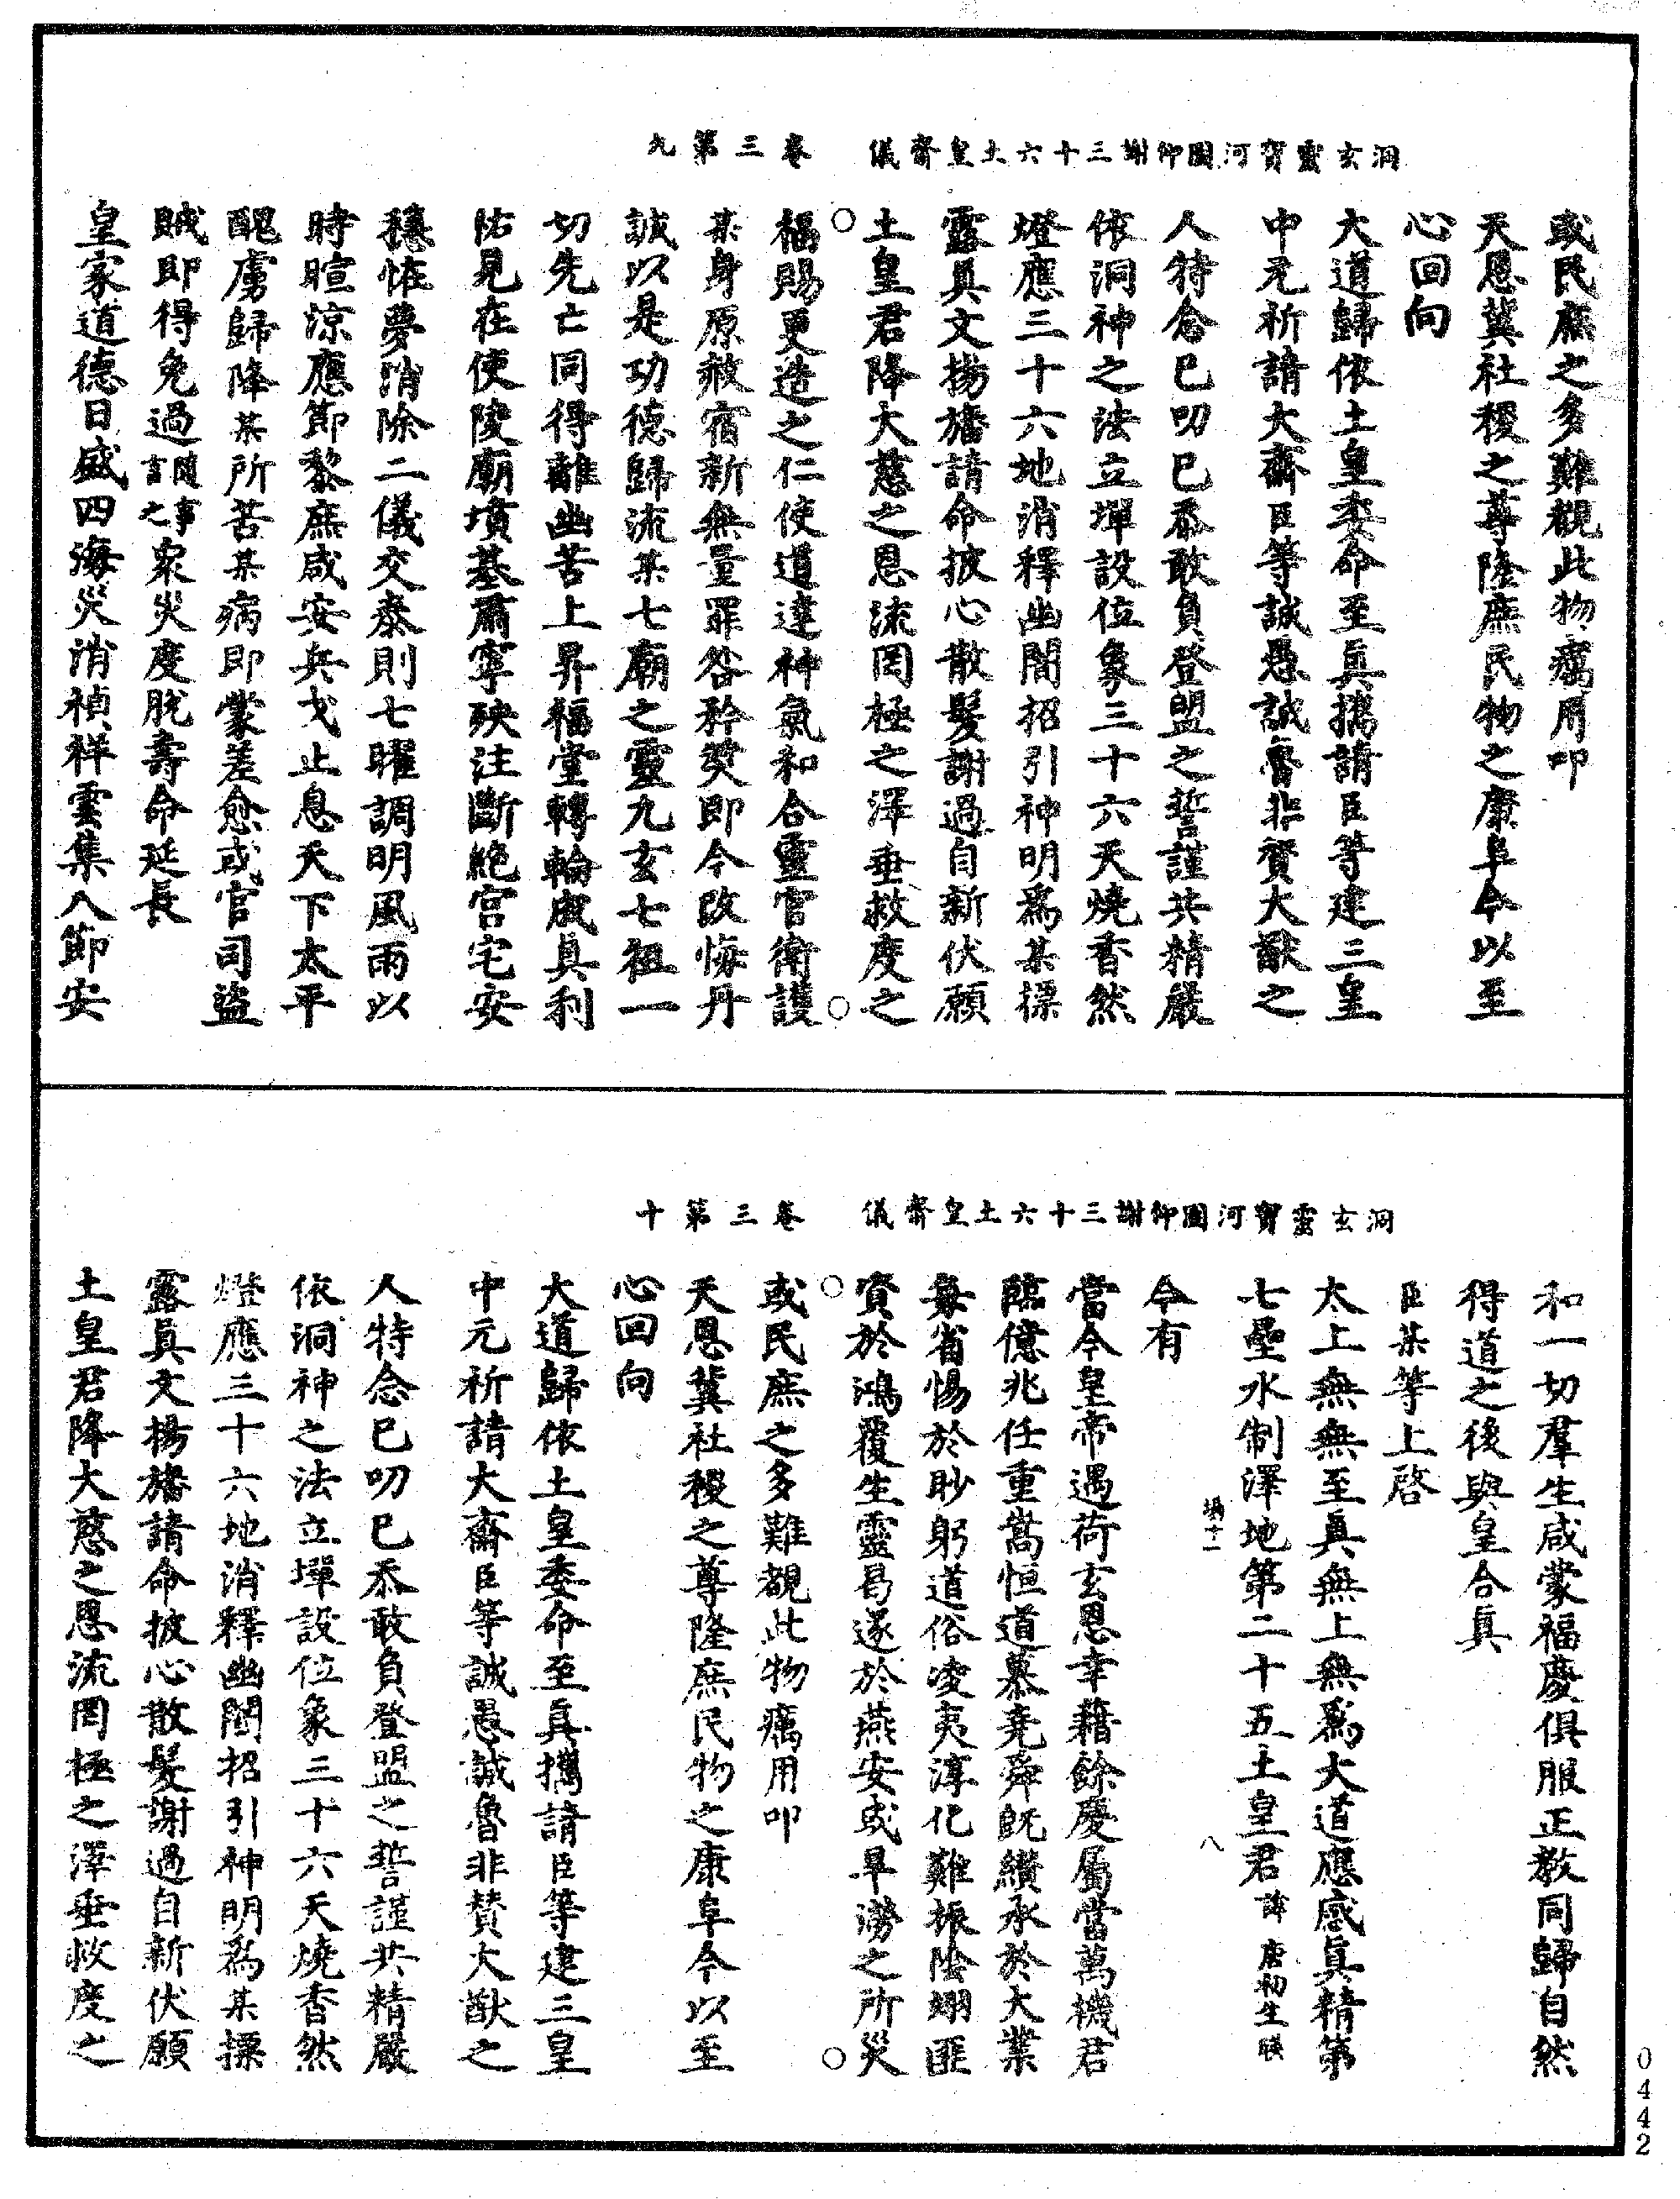 洞玄靈寶河圖仰謝三十六土皇齋儀 卷三第九
或民庶之多難觀此物癘用叩
天恩冀社稷之尊隆庶民物之康阜今以至
心回向
大道歸依土皇委命至眞攜請臣等建三皇
中元祈請大齋臣等誠愚誠魯非贊大猷之
人特念已叨已忝敢負登盟之誓謹共精嚴
依洞神之法立墠設位象三十六天燒香然
燈應三十六地消釋幽闇招引神明爲某摽
露眞文揚旛請命披心散髮謝過自新伏願
土皇君降大慈之恩流罔極之澤垂救度之
福賜更造之仁使道達神氣和合靈官衛護
某身原赦宿新無量罪咎矜獎即今改悔丹
誠以是功德歸流某七廟之靈九玄七祖一
切先亡同得離幽苦上昇福堂轉輪成眞利
祐見在使陵廟墳墓肅寧殃注斷絕宮宅安
穩恠夢消除二儀交泰則七曜調明風雨以
時暄涼應節黎庶咸安兵戈止息天下太平
醜虜歸降某所苦某病即蒙差愈或官司盜
賊即得免過隨事言之衆災度脫壽命延長
皇家道德日盛四海災消禎祥雲集八節安
洞玄靈寶河圖仰謝三十六土皇齋儀 卷三第十
和一切羣生咸蒙福慶俱服正教同歸自然
得道之後與皇合眞
臣某等上啓
太上無無至眞無上無爲大道應感眞精第
七壘水制澤地第二十五土皇君諱唐初生映
場十二 八
今有
當今皇帝遇荷玄恩幸藉餘慶屬當萬機君
臨億兆任重嵩恒道慕堯舜既纘承於大業
每省惕於眇躬道俗凌夷淳化難振陰翊匪
資於鴻覆生靈曷遂於燕安或旱澇之所災
或民庶之多難覩此物癘用叩
天恩冀社稷之尊隆庶民物之康阜今以至
心回向
大道歸依土皇委命至眞攜請臣等建三皇
中元祈請大齋臣等誠愚誠魯非贊大猷之
人特念已叨已忝敢負登盟之誓謹共精嚴
依洞神之法立墠設位象三十六天燒香然
燈應三十六地消釋幽闇招引神明爲某摽
露眞文揚旛請命披心散髮謝過自新伏願
土皇君降大慈之恩流罔極之澤垂救度之
0442